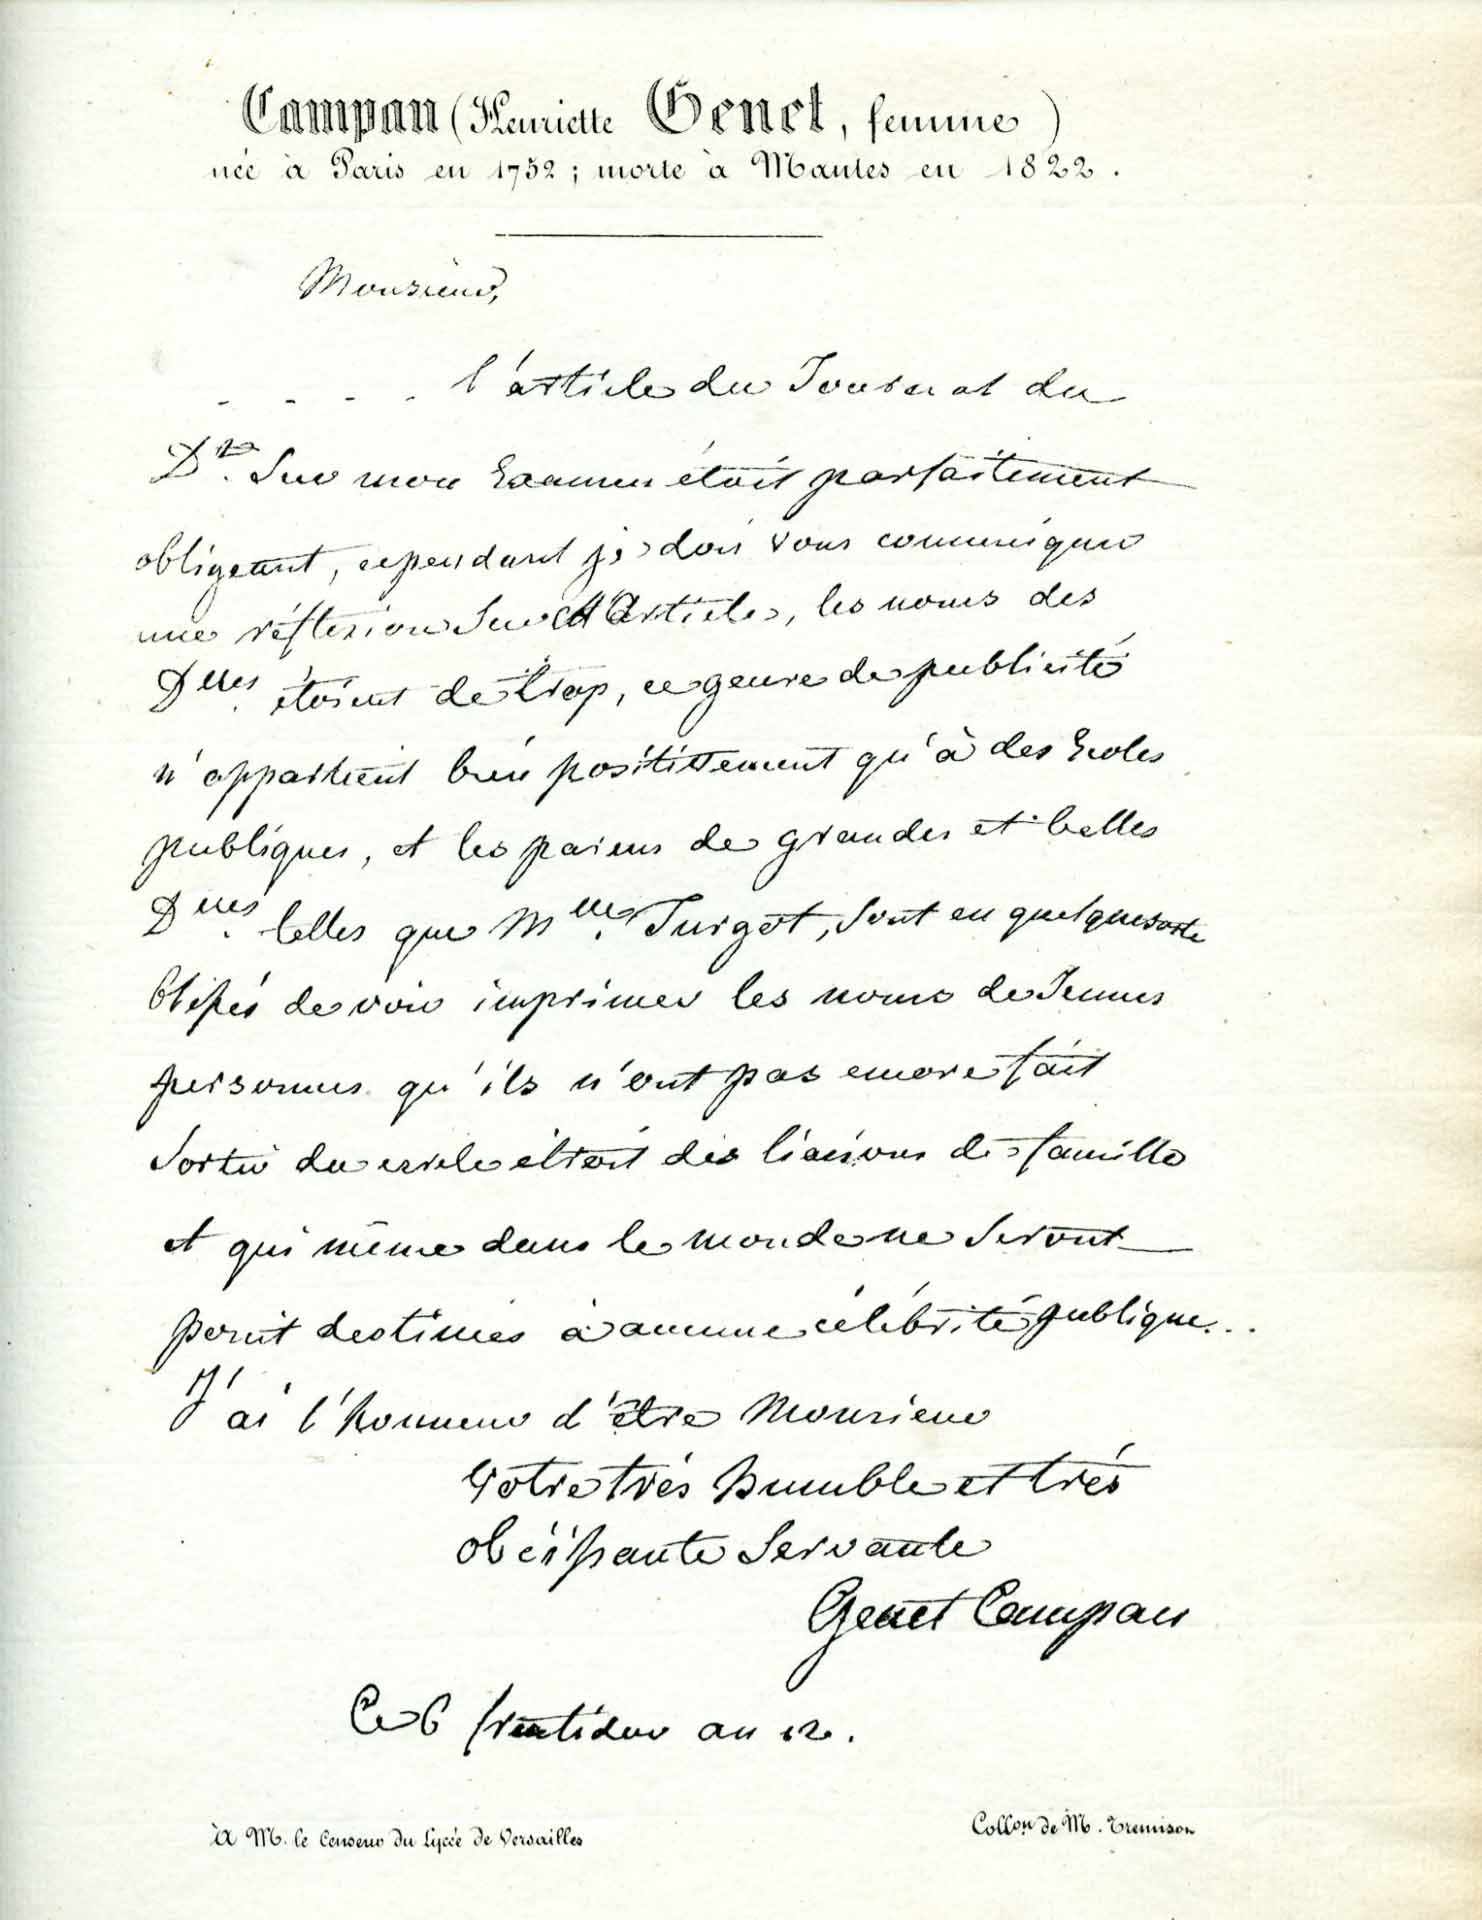 Campan (Henriette Genet, femme)
née à Paris en 1752 ; morte à Mantes en 1822.
Monsieur,
. . . . l'article du Journal du
Dt. Sur mon Examen étoit parfaitement
obligeant, cependant je dois vous communiquer
une réflexion Sur cet Article, les noms des
Dlles. étoient de trop, ce genre de publicité
n'appartient bien positivement qu'à des Ecoles
publiques, et les parens de grandes et belles
Dlles. telles que Mlle. Turgot, Sont en quelque sorte
blessés de voir imprimer les noms de Jeunes
personnes qu'ils n'ont pas encore fait
Sortir du cercle étroit des liaisons de famille
et qui même dans le monde ne Seront
point destinés à aucune célébrité publique...
J'ai l'honneur d'être Monsieur
Votre très humble et très
obéissante Servante
Genet Campan
Ce 6 fructidor an 12.
à M. le Censeur du Lycée de Versailles
Collon. de M. Tremison